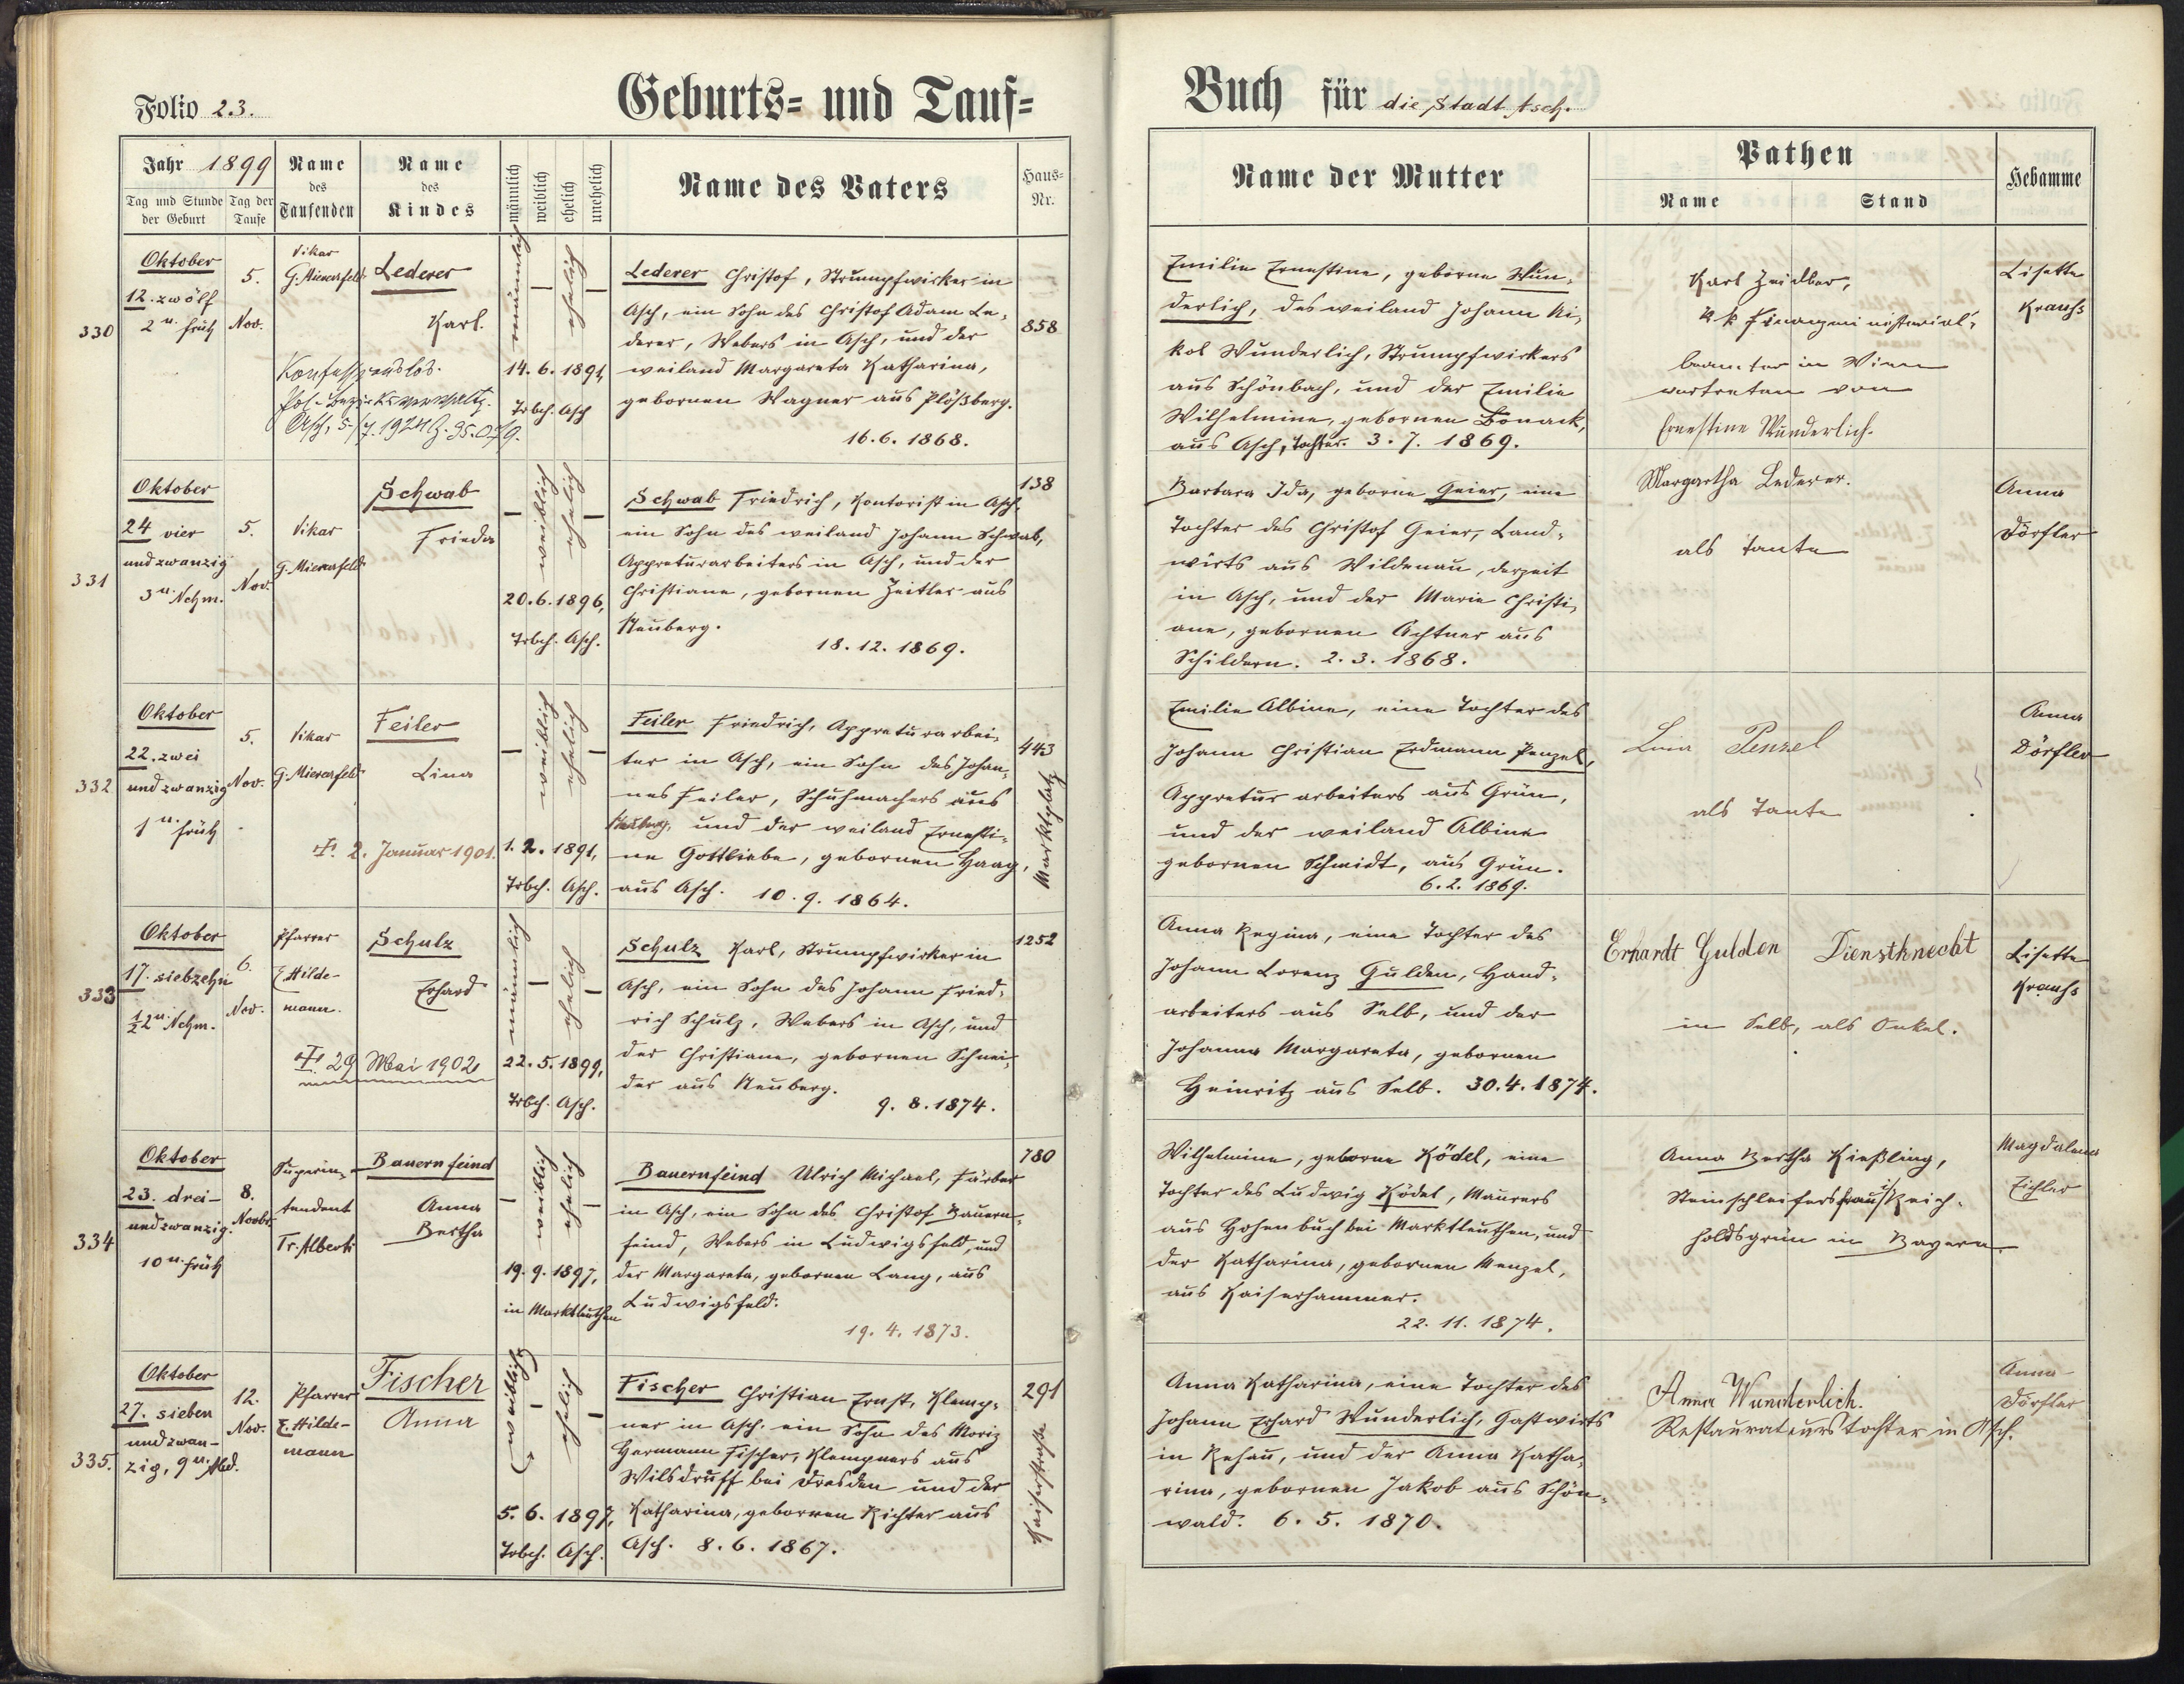 Folio 23.
Geburts- und Tauf-
Jahr 1899
Tag und Stunde der Geburt
Tag der Taufe
Name des Taufenden
Name des Kindes
männlich
weiblich
ehelich
unehelich
Name des Vaters
Haus-Nr.
330
Oktober
12. zwölf
2 u. früh
5.
Nov.
Vikar
G. Mierersfeld
Lederer
Karl.
Konfessionslos.
Asch, 5./7. 1924
männlich
—
ehelich
—
14. 6. 1891,
Trbch. Asch
Lederer Christof, Strumpfwirker in
Asch, ein Sohn des Christof Adam Le-
derer, Webers in Asch, und der
weiland Margareta Katharina,
gebornen Wagner aus Plößberg.
16. 6. 1868.
858
331
Oktober
24 vier
und zwanzig
3 u. Nchm.
5.
Nov.
Vikar
G. Mierersfeld
Schwab
Frieda
—
weiblich
ehelich
—
20. 6. 1896,
Trbch. Asch.
Schwab Friedrich, Kontorist in Asch,
ein Sohn des weiland Johann Schwab,
Appreturarbeiters in Asch, und der
Christiane, gebornen Zeitler aus
Neuberg.
18. 12. 1869.
138
332
Oktober
22. zwei
und zwanzig
1 u. früh
5.
Nov.
Vikar
G. Mierersfeld
Feiler
Lina
✝. 2. Januar 1901.
—
weiblich
ehelich
—
1. 2. 1891,
Trbch. Asch.
Feiler Friedrich, Appreturarbei-
ter in Asch, ein Sohn des Johan-
nes Feiler, Schuhmachers aus
Neuberg, und der weiland Ernesti-
ne Gottliebe, gebornen Haag,
aus Asch. 10. 9. 1864.
443
Marktplatz
333
Oktober
17. siebzehn
1/2 2 u. Nchm.
6.
Nov.
Pfarrer
E. Hilde-
mann.
Schulz
Erhard
✝. 29 Mai 1902
männlich
—
ehelich
—
22. 5. 1899,
Trbch. Asch.
Schulz Karl, Strumpfwirker in
Asch, ein Sohn des Johann Fried-
rich Schulz, Webers in Asch, und
der Christiane, gebornen Schnei-
der aus Neuberg.
9. 8. 1874.
1252
334
Oktober
23. drei-
und zwanzig.
10 u. früh
8.
Novbr.
Superin-
tendent
Tr. Alberti
Bauernfeind
Anna
Bertha
—
weiblich
ehelich
—
19. 9. 1897,
in Marktleuthen
Bauernfeind Ulrich Michael, Färber
in Asch, ein Sohn des Christof Bauern-
feind, Webers in Ludwigsfeld, und
der Margareta, gebornen Lang, aus
Ludwigsfeld.
19. 4. 1873.
780
335.
Oktober
27. sieben
und zwan-
zig, 9 u. Abd.
12.
Nov.
Pfarrer
E. Hilde-
mann
Fischer
Anna
weiblich
—
ehelich
—
5. 6. 1897,
Trbch. Asch.
Fischer Christian Ernst, Klemp-
ner in Asch, ein Sohn des Moriz
Hermann Fischer, Klempners aus
Wilsdruff bei Dresden und der
Katharina, gebornen Richter aus
Asch. 8. 6. 1867.
291
Kaiserstraße
Buch für die Stadt Asch.
Name der Mutter
Pathen
Name
Stand
Hebamme
Emilie Ernestine, geborne Wun-
derlich, des weiland Johann Ni-
kol Wunderlich, Strumpfwirkers
aus Schönbach, und der Emilie
Wilhelmine, gebornen Bonack,
aus Asch, Tochter. 3. 7. 1869.
Karl Zeidler,
k k Finanzministerial-
beamter in Wien
vertreten von
Ernestine Wunderlich.
Lisette
Krauhs
Barbara Ida, geborne Geier, eine
Tochter des Christof Geier, Land-
wirts aus Wildenau, derzeit
in Asch, und der Marie Christi-
ane, gebornen Achtner aus
Schildern. 2. 3. 1868.
Margaretha Lederer.
als Tante
Anna
Dörfler
Emilie Albine, eine Tochter des
Johann Christian Erdmann Penzel,
Appreturarbeiters aus Grün,
und der weiland Albine
gebornen Schmidt, aus Grün.
6. 2. 1869.
Lina Penzel
als Tante
Anna
Dörfler
Anna Regina, eine Tochter des
Johann Lorenz Gulden, Hand-
arbeiters aus Selb, und der
Johanna Margareta, gebornen
Heinritz aus Selb. 30. 4. 1874.
Erhardt Gulden Dienstknecht
in Selb, als Onkel.
Lisette
Krauhs
Wilhelmine, geborne Ködel, eine
Tochter des Ludwig Ködel, Maurers
aus Hohenbuch bei Marktleuthen, und
der Katharina, gebornen Menzel,
aus Kaiserhammer.
22. 11. 1874.
Anna Bertha Kießling,
Steinschleifersfrau i/ Reich-
holdsgrün in Bayern.
Magdalena
Eichler
Anna Katharina, eine Tochter des
Johann Erhard Wunderlich, Gastwirts
in Rehau, und der Anna Katha-
rina, gebornen Jakob aus Schön-
wald. 6. 5. 1870.
Anna Wunderlich.
Restaurateurstochter in Asch.
Anna
Dörfler